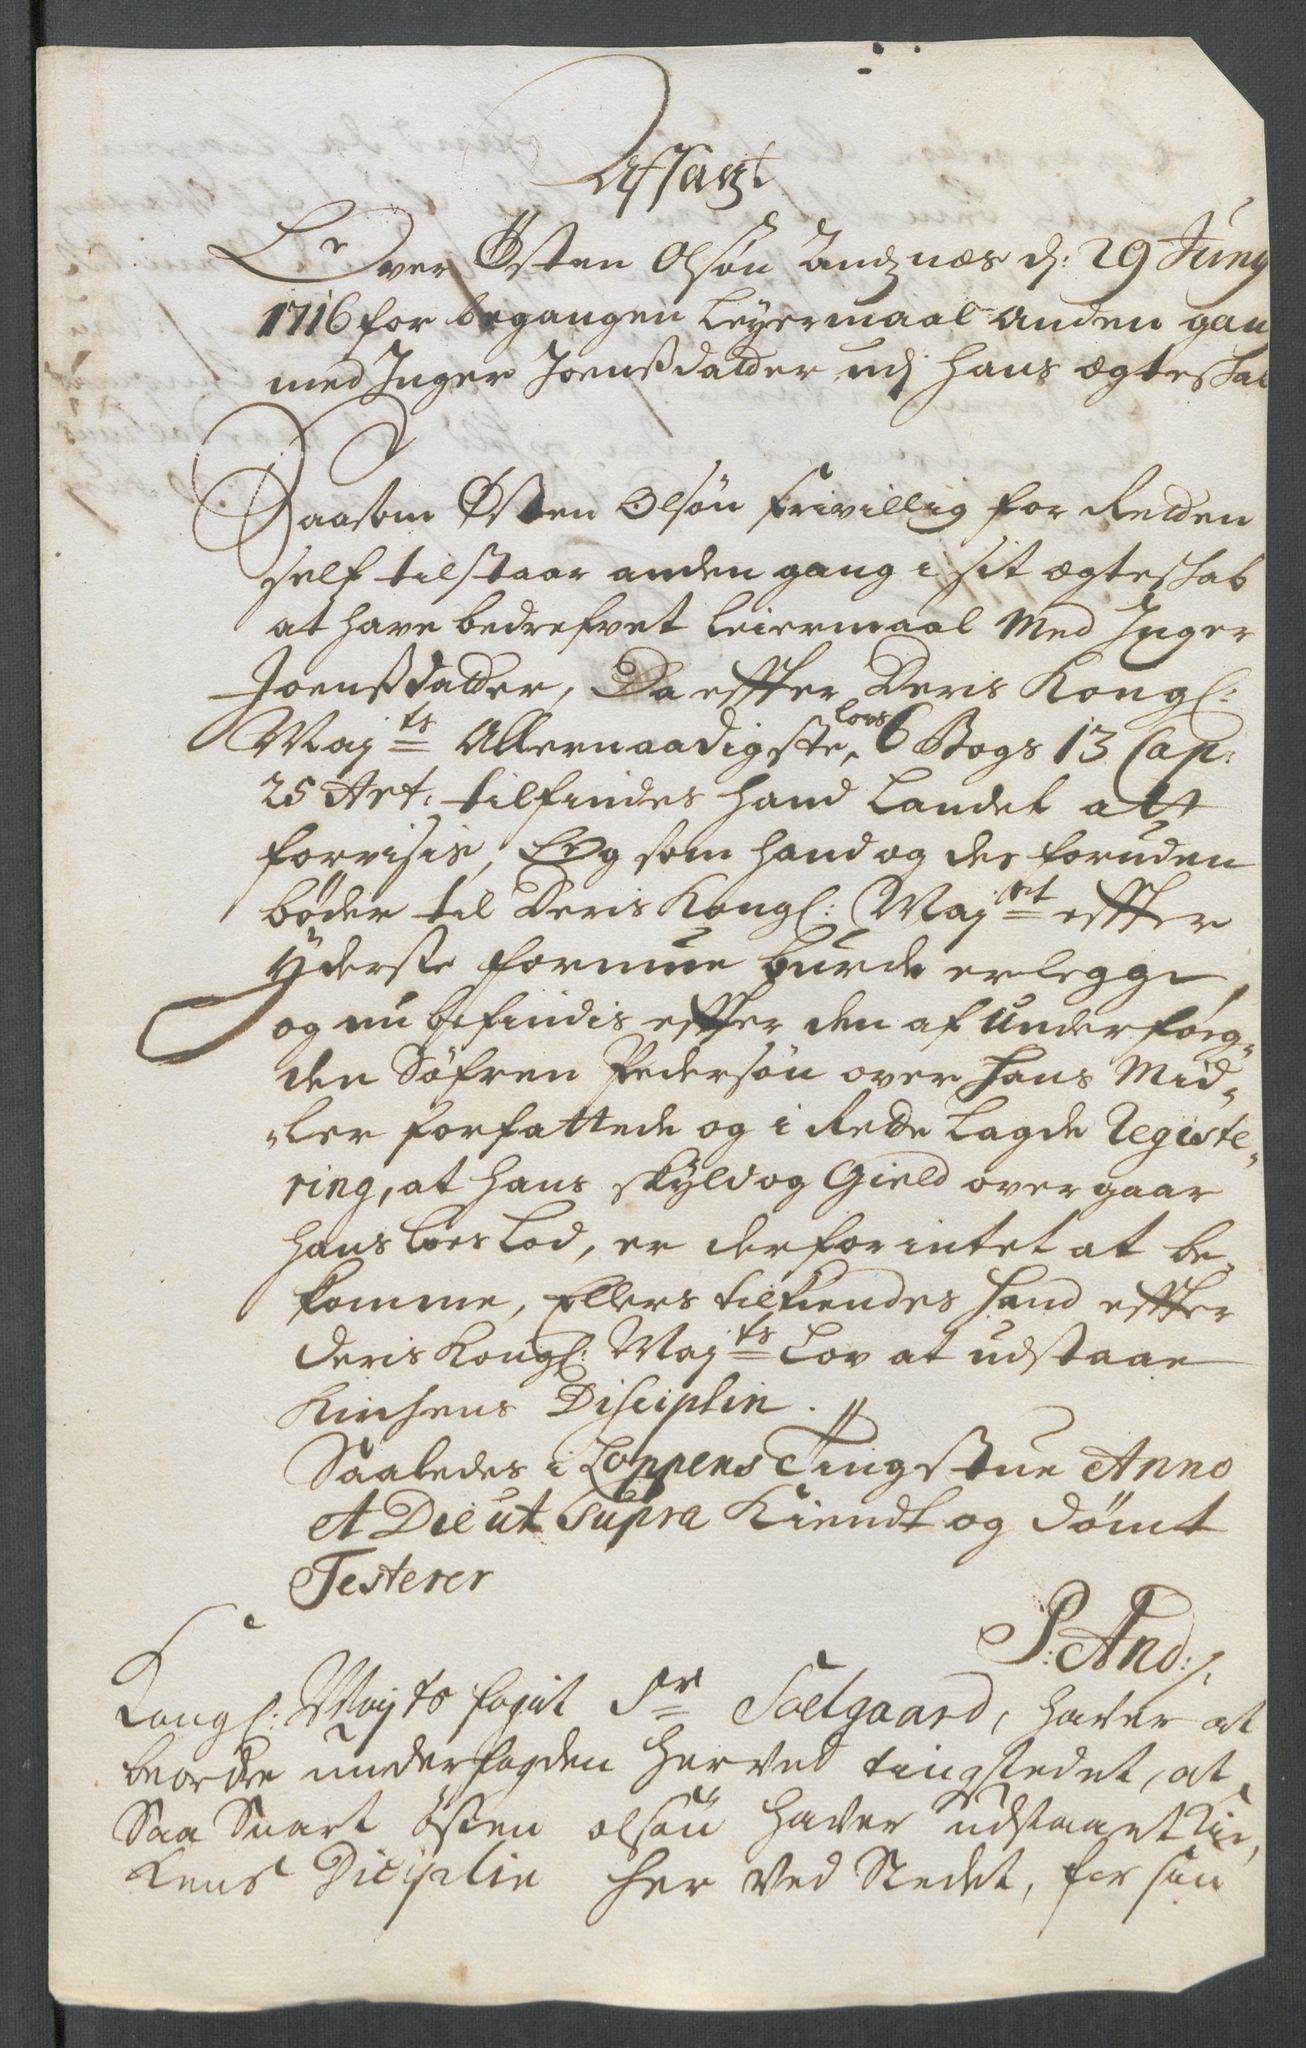 Afsagt
Over Østen Olsøn Andznæs d: 29 Juny
1716 for begangen Leyermaal anden gan
med Inger Joensdatter udj hans ægteskab
Saasom Østen Olsøn frivillig for Retten
self tilstaar anden gang i sit ægteskab
at have bedrefvet leiermaal Med Inger
Joensdatter, Da effter Deris Kongl:
Mayts Allernaadigste lovs 6 Bogs 13 Cap:
25 Art: tilfindes hand Landet att
forvisis, Og som hand og des foruden
bøder til Deris Kongl: Mayt effter
Yderste formue burde erlegge,
og nu befindis effter den af Underfoug-
den Søfren Pedersøn over hans Mid-
-ler forfattede og i Rette Lagde Registe-
ring, at hans skyld og Gield overgaar
hans boes Lod, er derfor intet at be-
komme, Ellers tilkiendes hand effter
Deris Kongl: Mayts Lov at udstaae
Kirchens Disciplin.
Saaledes i Loppens Tingstue Anno
et Die ut Supra Kiendt og Dømt
Testerer
P: And:
Kongl: Mayts fogit Sr Soelgaard, haver at
beordre underfogden herved tingstedet, at
Saa Snart Østen olsøn haver udstaaet Kir-
kens Diciplin her ved Stedet, for sin